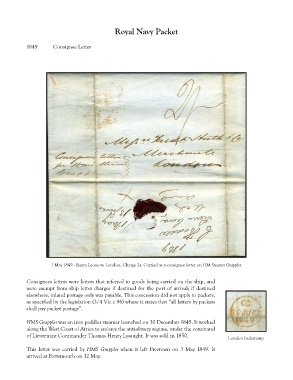 Royal Navy Packet
1849 Consignee Letter
Merchants
London
Consignees letter
1 May 1849 - Sierra Leone to London, Charge 2s. Carried as a consignee letter on HM Steamer Grappler.
Consignees letters were letters that referred to goods being carried on the ship, and
were exempt from ship letter charges if destined for the port of arrival; if destined
elsewhere, inland postage only was payable. This concession did not apply to packets,
as specified by the legislation (3/4 Vic c 96) where it states that "all letters by packets
shall pay packet postage".
HMS Grappler was an iron paddles steamer launched on 30 December 1845. It worked
along the West Coast of Africa to enforce the anti-slavery regime, under the command
of Lieutenant Commander Thomas Henry Lysaght. It was sold in 1850.
This letter was carried by HMS Grappler when it left Freetown on 3 May 1849. It
arrived at Portsmouth on 12 May.
London backstamp